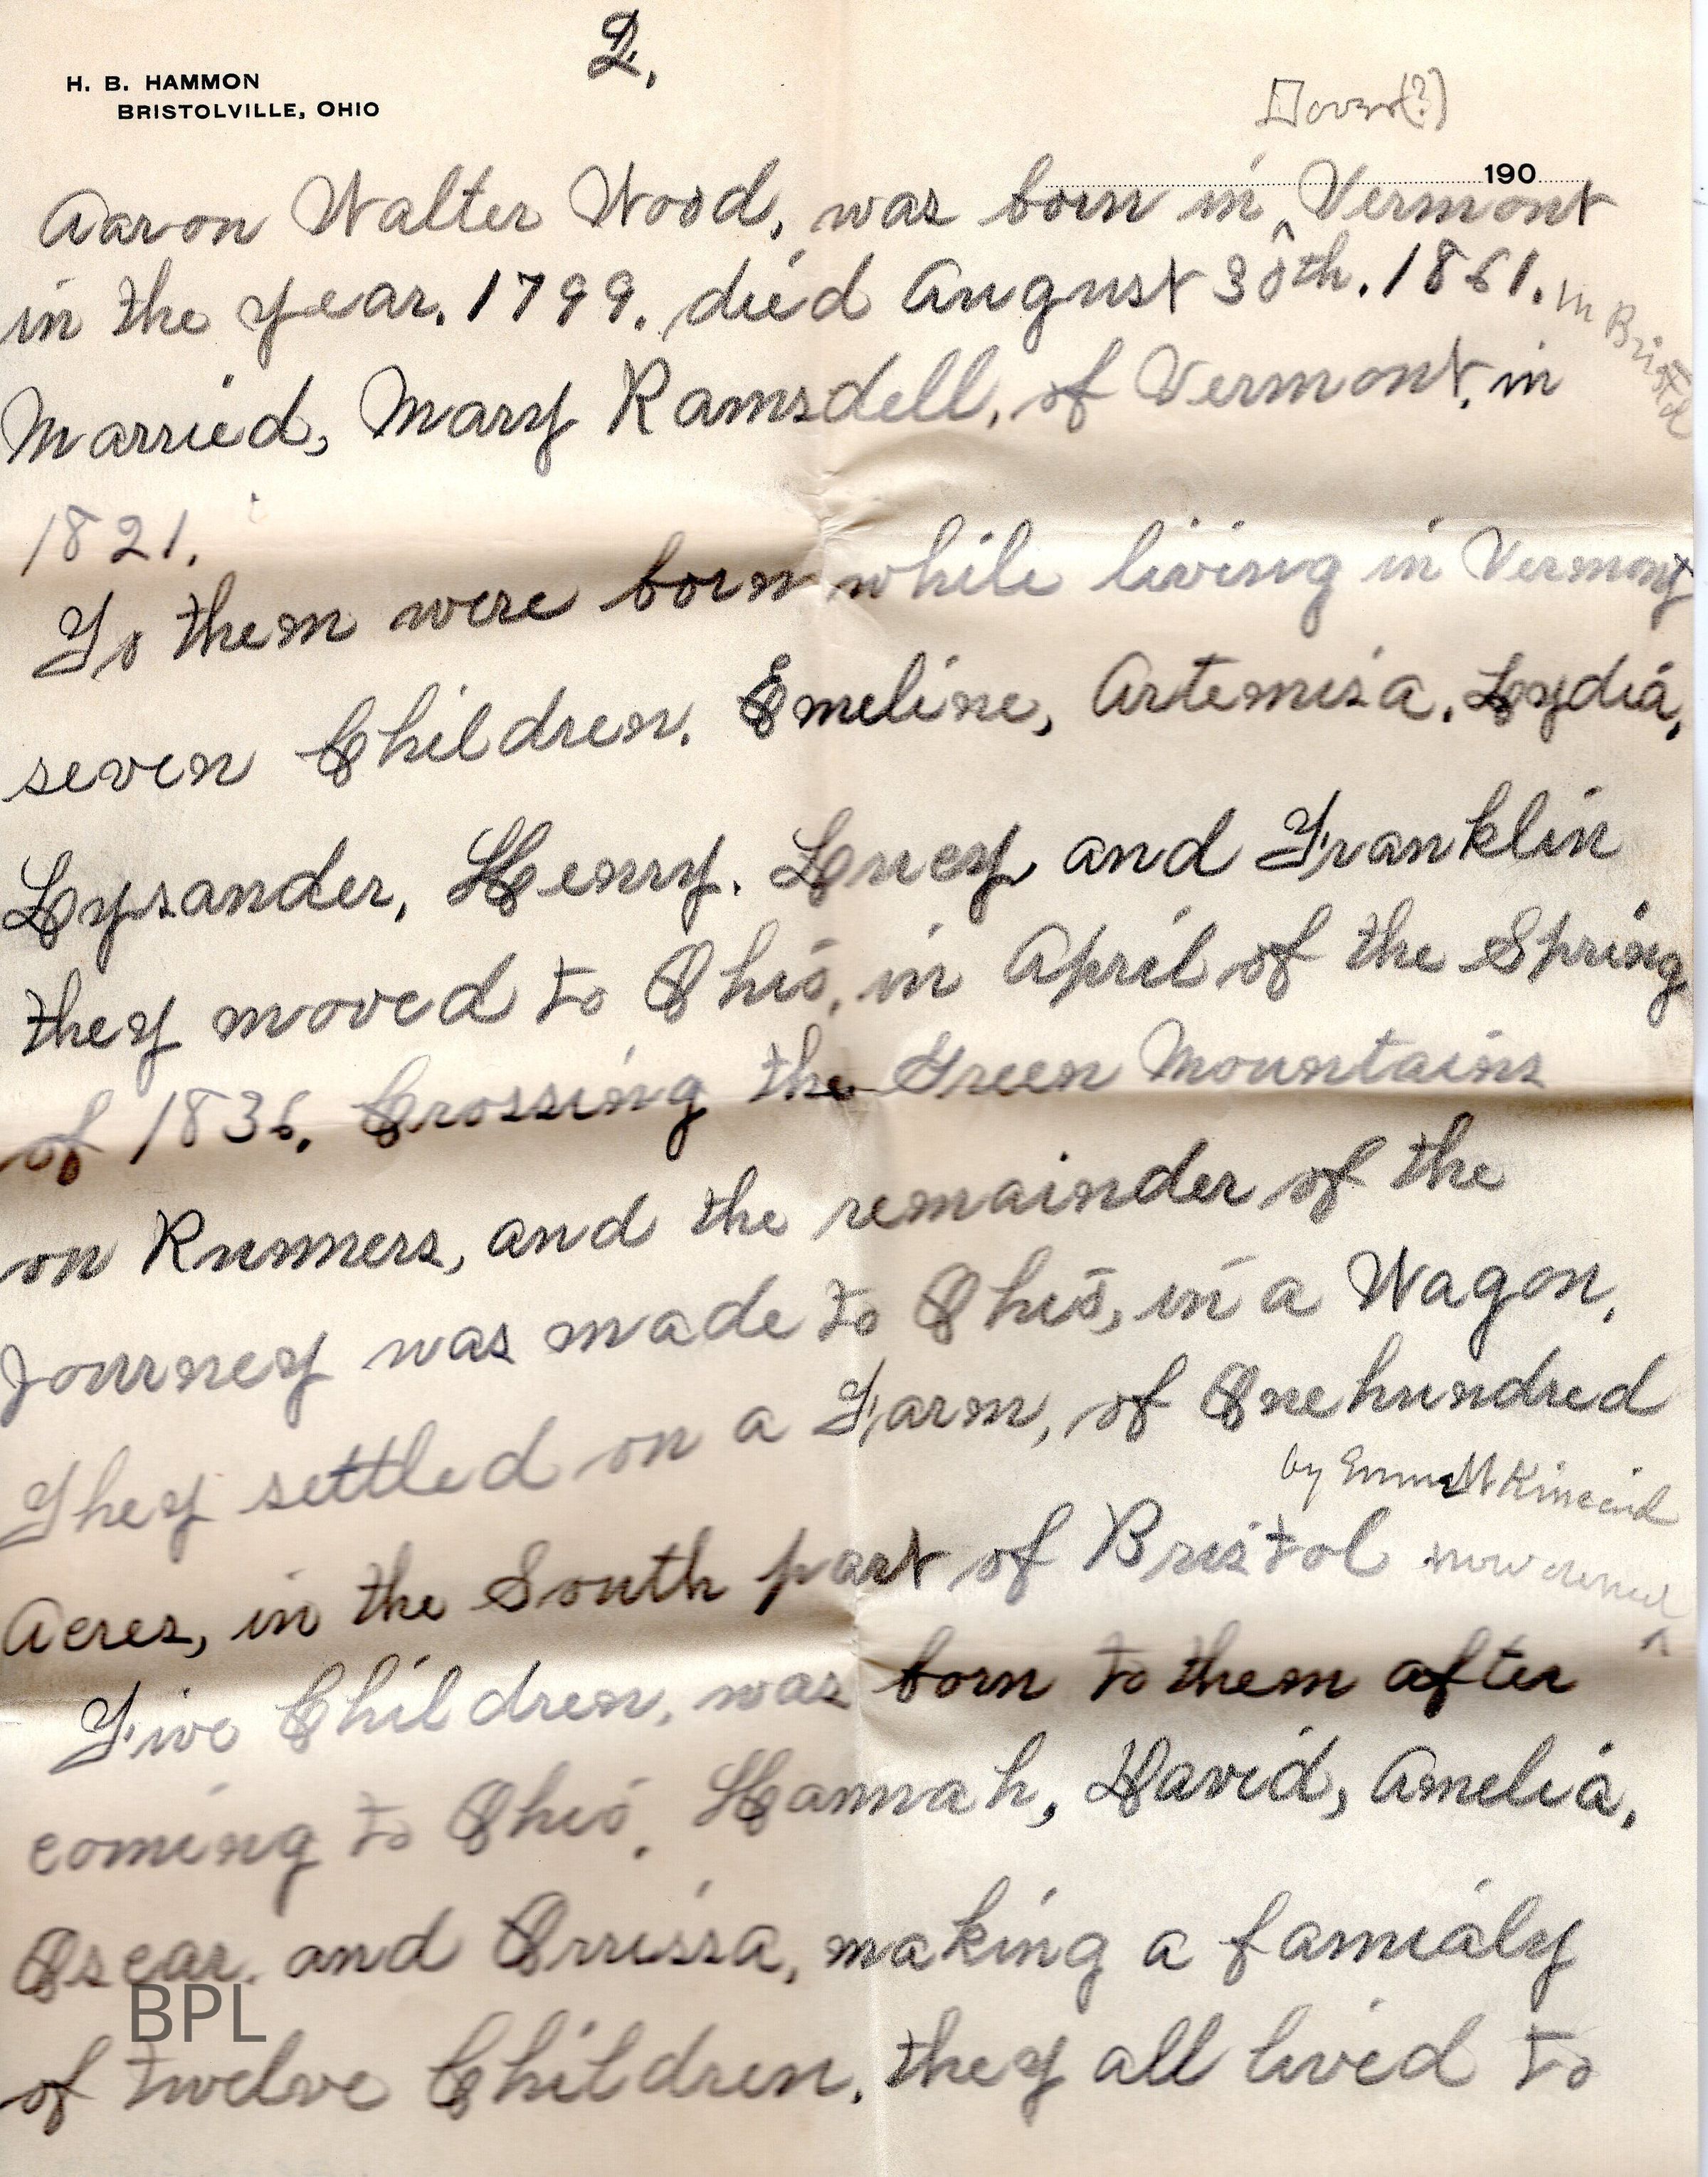 2.
H. B. HAMMON
BRISTOLVILLE, OHIO
Dover(?)
190
Aaron Walter Wood, was born in ^ Vermont
in the year. 1799. died August 30th. 1861. in Bristol
Married, Mary Ramsdell, of Vermont, in
1821.
To them were born while living in Vermont
seven Children. Emeline, Artemisa. Lydia,
Lysander, Henry. Lucy, and Franklin
they moved to Ohio, in April of the Spring
of 1836. Crossing the Green Mountains
on Runners, and the remainder of the
Journey was made to Ohio, in a Wagon.
They settled on a Farm, of Onehundred
by Emmett Kincaid
Acres, in the South part of Bristol now owned ^
Five Children, was born to them after
coming to Ohio. Hannah, David, Amelia,
Oscar. and Orrissa, making a familaly
of twelve Children. they all lived to
BPL